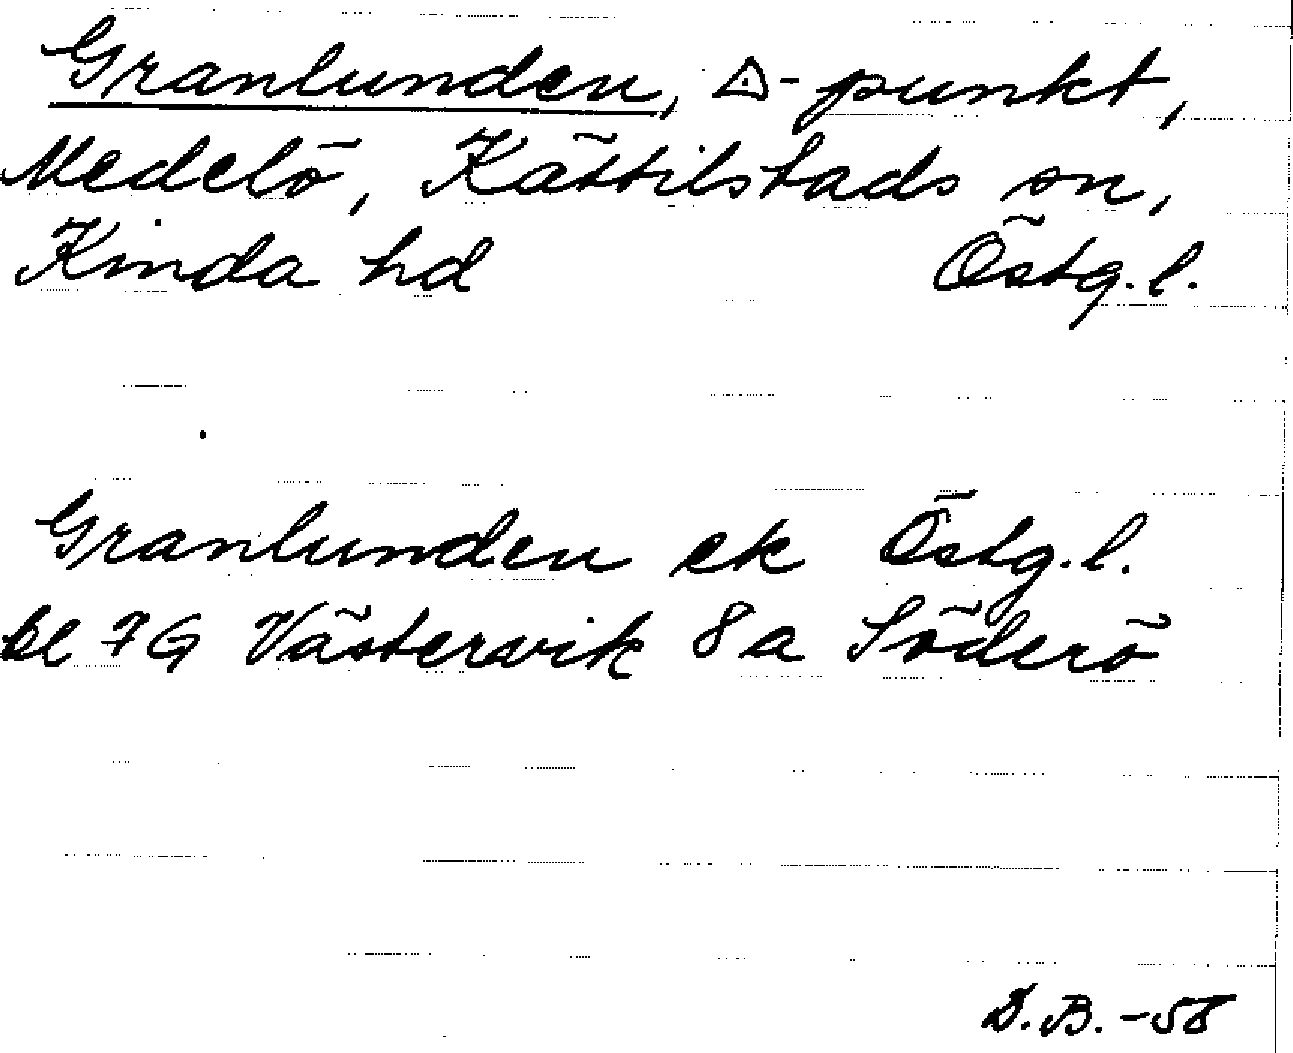 Granlunden, △-punkt,
Medelö, Kättilstads sn,
Kinda hd Östg.l.
Granlunden ek Östg.l.
bl 7G Västervik 8a Söderö
D.B. -58